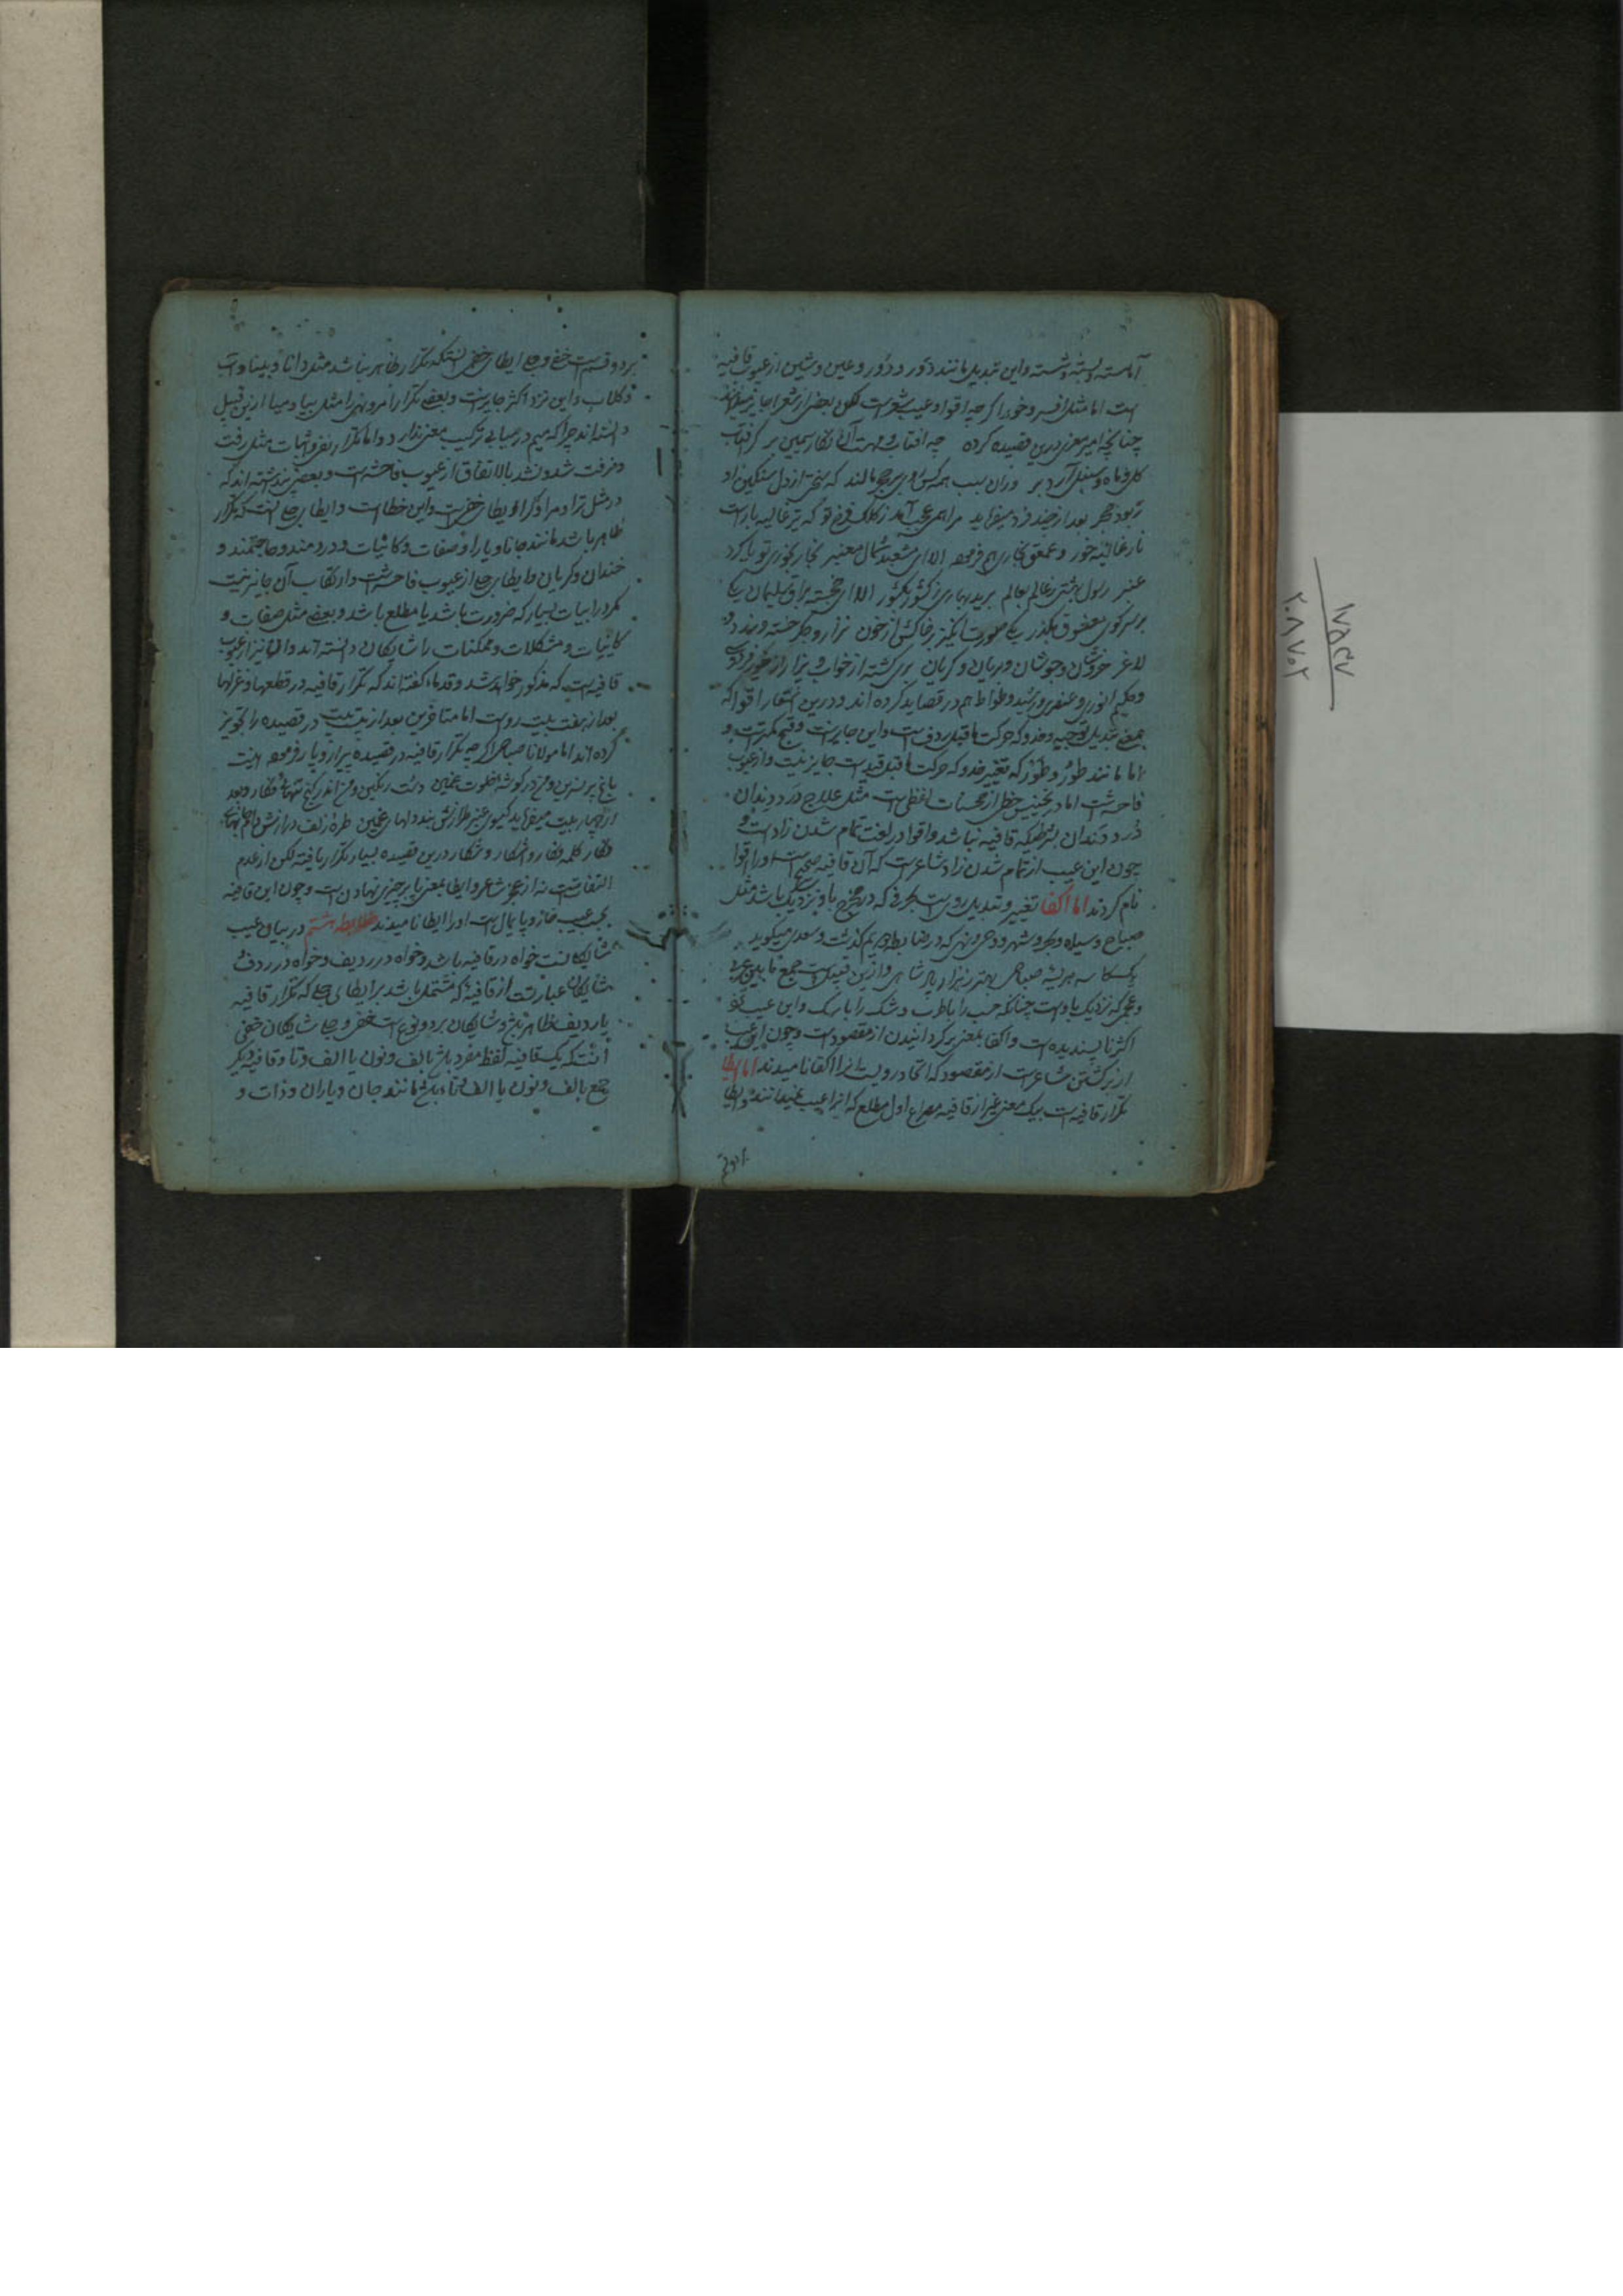 آهسته و بسته و شسته و این تبدیل مانند دَور و دُور و عین و شین از عیوب قافیه
است اما مثل افسر و خور اگر چه اقوا و عیب شعر است لکن بعضی از شعرا جایز
چنانچه امیر معزی درین قصیده کرده چه آفتاب و مهست آن نگار سیمین بر گر آفتاب
گل و ماه سنبل آرد بر وران سبب همه کس مالند که سختی از دل سنگین او
ربود حجر بعد از چند فرد میفراید مرا همی عجب آمد ز کلک فرخ تو که بر غالیه بار است
نار غالیه خور و عمعق بخاری هم فرموده الا ای مشعبد شمال معنبر بخار بخوری تو یا گرد
عنبر رسول بهشتی ز عالم بعالم برید بهاری ز کشور بکشور الا ای خجسته براق سلیمان یکی
بر سر کوی معشوق بگذر یکی صورت انگیز بر خاکش از خون نزار و جگر خسته و
لاغر خروشان و جوشان و بریان و گریان بری گشته از خواب و بزار از خور
و حکیم انوری و عنصری و رشید وطواط هم در قصاید کرده اند و درین اشعار اقوا که
بمعنی تبدیل توجیه و حذو که حرکت ماقبل ردف است و این جایز است و قبح کمتر است و
اما مانند طَور و طُور که تغییر حذو که حرکت ماقبل قید است جایز نیست و از عیوب
فاحش است اما در تجنیس خطی از محسنات لفظی است مثل علاج درد دندان
دُرد دندان بشرطیکه قافیه نباشد و اقوا در لغت تمام شدن زاد است و
چون این عیب از تمام شدن زاد شاعر است که آن قافیه صحیح است او را اقوا
نام کردند اما اکفا تغییر و تبدیل روی است بحرفی که در مخرج باو نزدیک باشد مثل
صباح و سیاه و بحر و شهر و وحی و نهی که در ضابطه گذشت و سعدی میگوید
یک کاسه هریسه صباحی بهتر ز هزار پادشاهی و ازین قبیل است جمع ما بین عربی
و عجمی که نزدیک باوست چنانکه چپ را با طرب و شک را با رگ و این عیب نزد
اکثر ناپسندیده است و اکفا بمعنی برگردانیدن از مقصود است و چون این عیب
از برگشتن شاعر است از مقصود که اتحاد رویست آنرا اکفا نامیدند اما ایطا
تکرار قافیه است بیک معنی غیر از قافیه مصراع اول مطلع که آنرا عیب نمیدانند و ایطا
بر دو قسم است خفی و جلی ایطای خفی آنستکه تکرار ظاهر نباشد مثل دانا و بینا و آب
و گلاب و این نزد اکثر جایز است و بعضی تکرار امر و نهی را مثل بیا و میا ازین قبیل
دانسته اند چرا که میم در میا بی ترکیب معنی ندارد و اما تکرار نفی و اثبات مثل رفت
و نرفت شد و نشد بالاتفاق از عیوب فاحشه است و بعضی پنداشته اند که
در مثل ترا و مرا و کرا و ایطای خفی است و این خطا است و ایطای جلی آنست که تکرار
ظاهر باشد مانند جانا و یارا و صفات و کائنات و دردمند و حاجتمند و
خندان و گریان و ایطای جلی از عیوب فاحش است و ارتکاب آن جایز نیست
مگر در ابیات بسیار که ضرورت باشد یا مطلع باشد و بعضی مثل صفات و
کاینات و مشکلات و ممکنات را شایگان دانسته اند و آن نیز از عیوب
قافیه است که مذکور خواهد شد و قدما گفته اند که تکرار قافیه در قطعها و غزلها
بعد از هفت بیت رواست اما متاخرین بعد از بیست بیت در قصیده را تجویز
کرده اند اما مولانا صباحی اگر چه تکرار قافیه در قصیده فرموده اینست
باغ پر نسرین و من در گوشه خلوت غمین دشت رنگین و من اندر کنج تنهائی فگار و بعد
از چهار بیت میفراید گیسوی عنبر طرازش بند دلهای غمین طره زلف درازش دام جانهای
فگار کلمه فگار و آشکار و شکار درین قصیده بسیار تکرار یافته لکن از عدم
التفاتست نه از عجز شاعر و ایطا بمعنی پا بر چیزی نهادن است و چون این قافیه
بجیب پایمال است او را ایطا نامیدند ضابطه هشتم در بیان عیب
شایگانست خواه در قافیه باشد و خواه در ردیف و خواه در ردف
شایگان عبارتست از قافیهٔ که مشتمل باشد بر ایطای جلی که تکرار قافیه
یا ردیف ظاهر باشد و شایگان بر دو نوع است خفی و جلی شایگان خفی
آنستکه یک قافیه لفظ مفرد باشد بالف و نون یا الف و تا و قافیه دیگر
جمع بالف و نون یا الف و تا باشد مانند جان و یاران و ذات و
بر دو
۱۷۵۴۷
۲۰۸۷۰۲